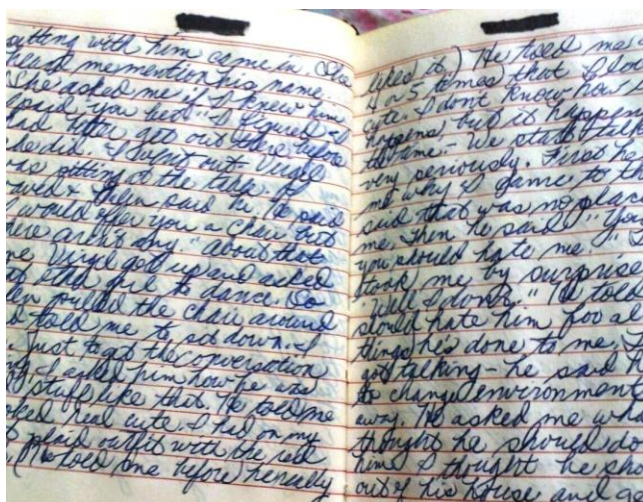 sitting with him came in. She
heard me mention his name.
She asked me if I knew him
I said "you bet" I figured I
had better get out there before
she did. I went out. Virgil
was sitting at the table. I
said hi. He said
I would offer you a chair but
there aren't any" about that
time Virgil got up and asked
girl to dance. So
pulled the chair around
& told me to sit down. I
just to get the conversation
I asked him how he was
& stuff like that. He told me
looked real cute. I had on my
plaid outfit with the red
(He told me before he really
liked it) He told me
4 or 5 times that I
cute. I dont know how
happens but it happens
time. We started talking
very seriously. First he
me why I came to the
said that was no place
me. Then he said "You
you should be to me."
took me by surprise
"Well I don't." He told
should hate him for all
things he's done to me.
got talking - he said
to change environment
away. He asked me wh
thought he should do
him I thought he sh
out of his house and